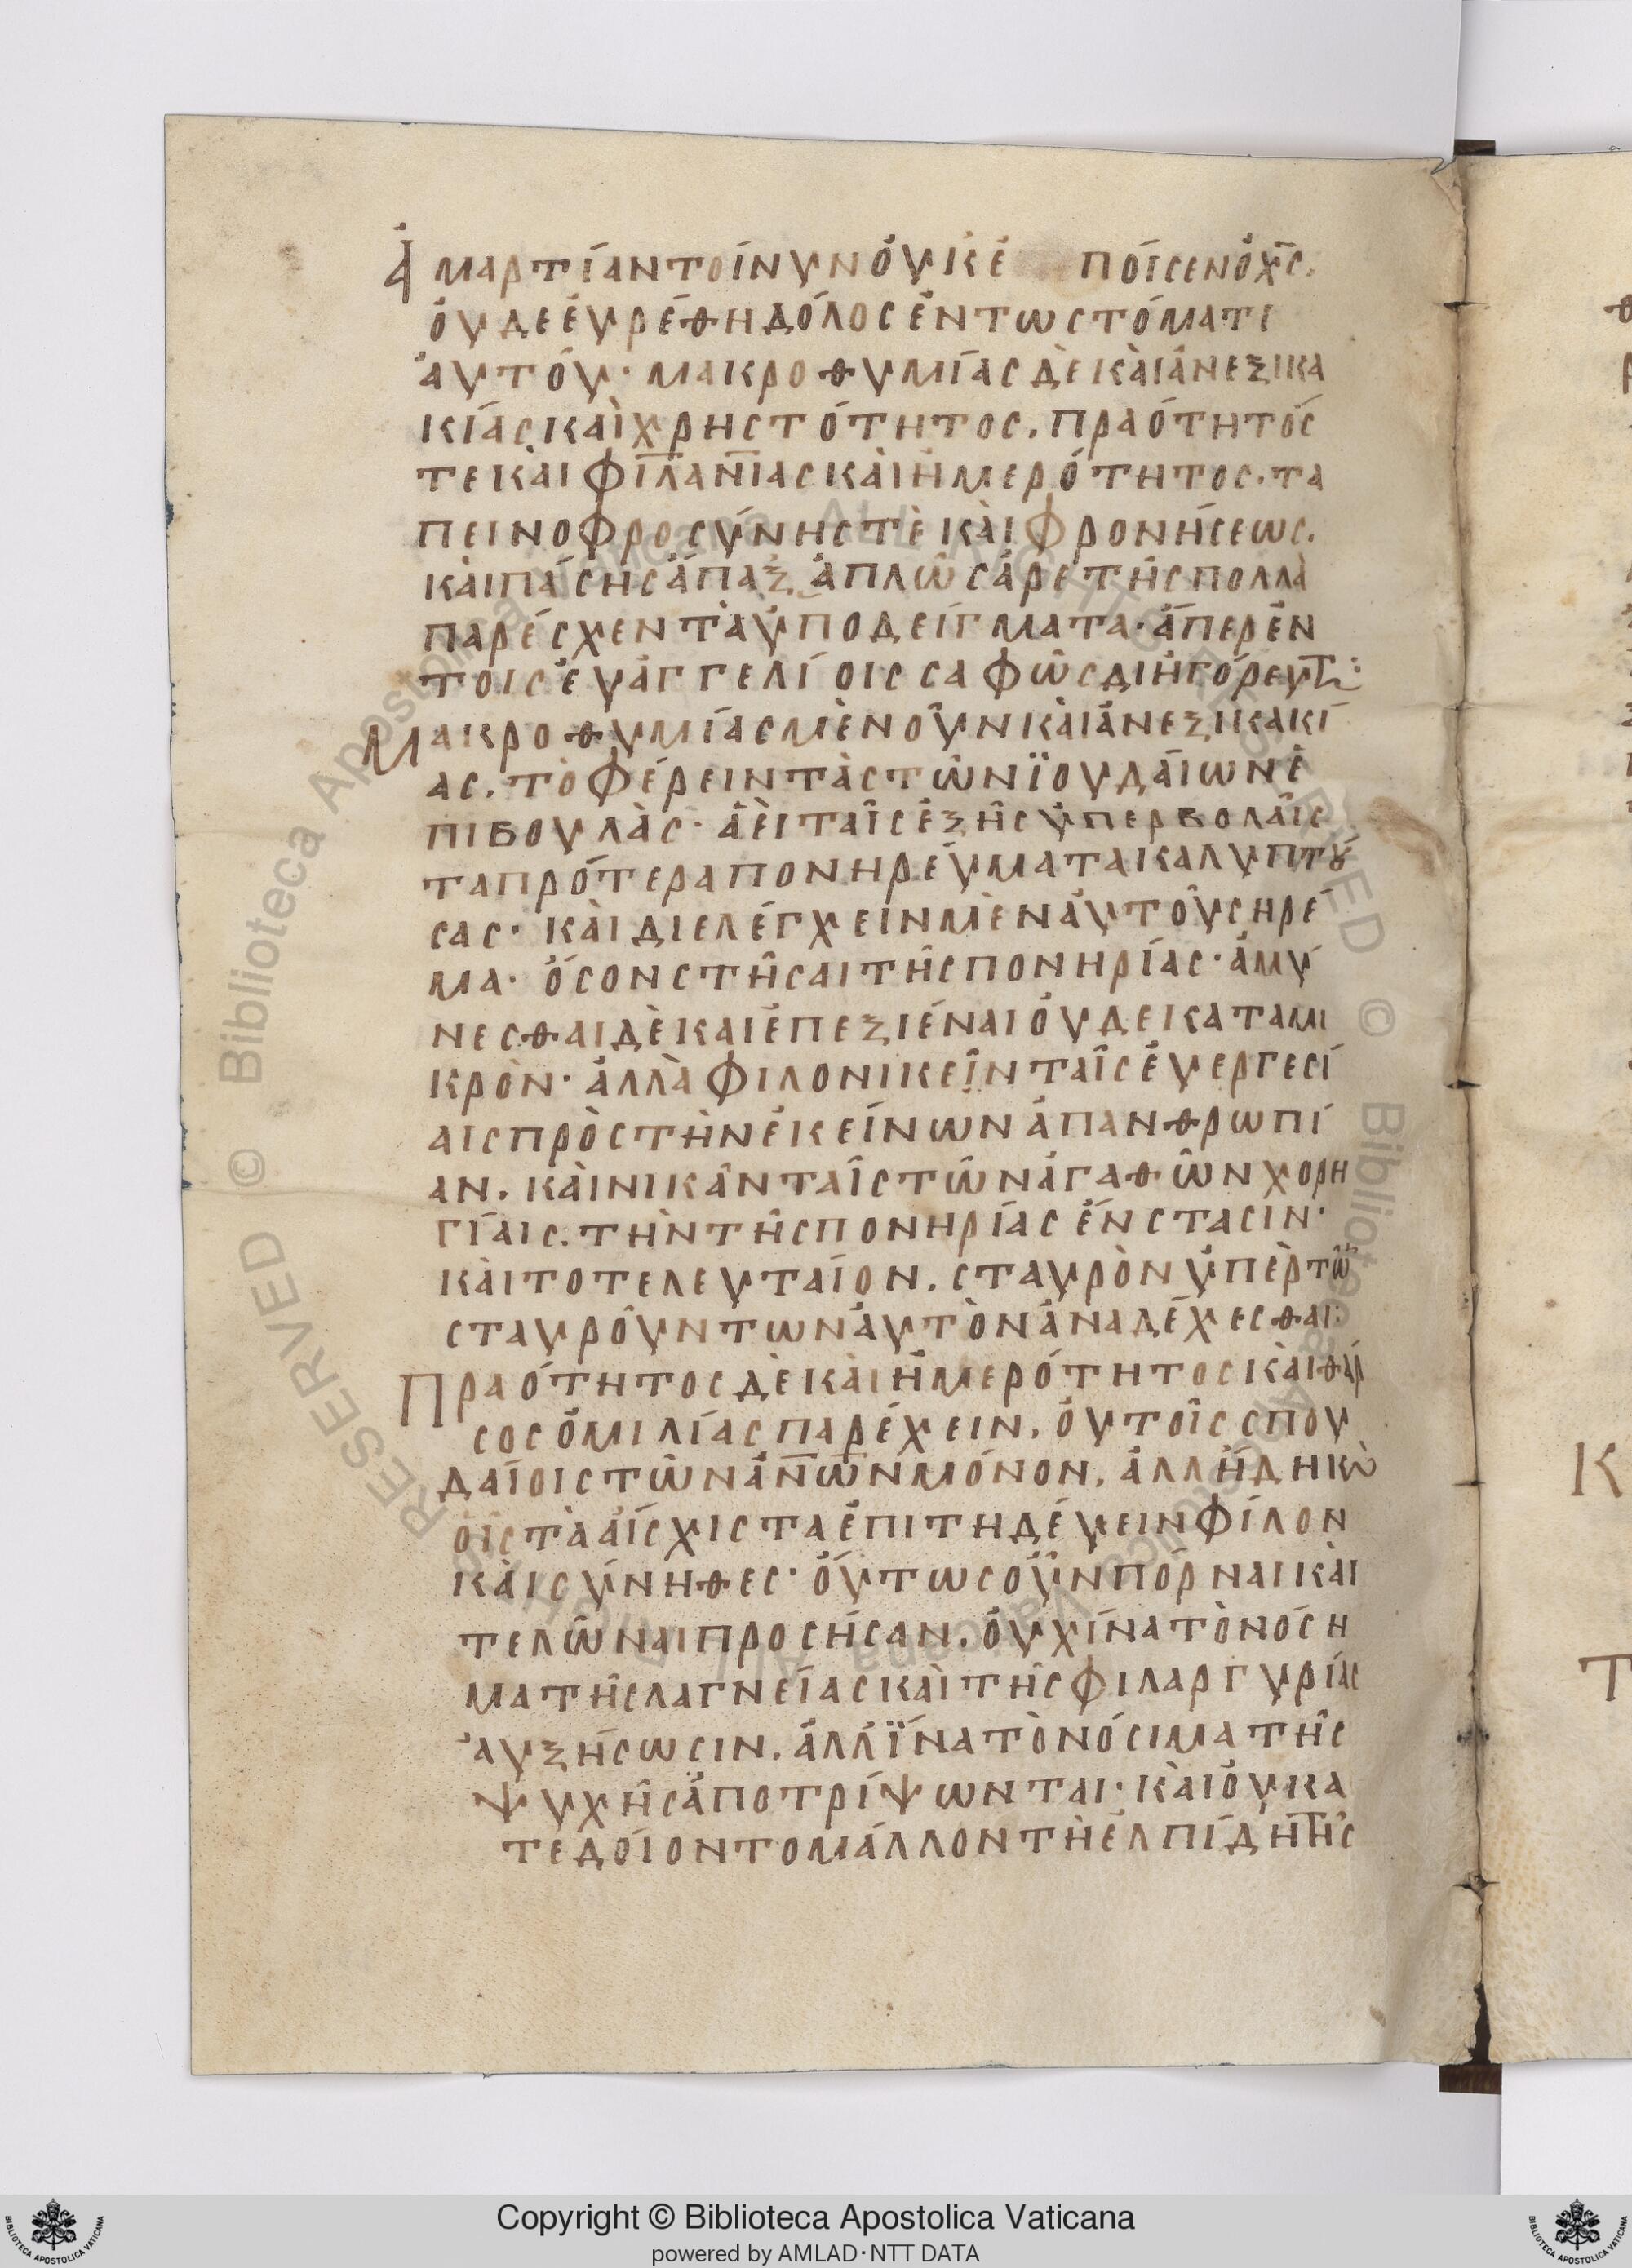 ἁμαρτίαν τοίνυν ὀυκ ἐποίσεν ὁ χ̅ς̅.
ὀυδε ἑυρέθη δόλος ἐν τω στόματι
ἀυτόυ· μακροθυμίας δὲ κὰι ἀνεξικα
κίας κὰι χρηστότητος. πραότητός
τε κὰι φιλα̅ν̅ίας κὰι ἡμερότητος. τα
πεινοφροσύνης τὲ κὰι φρονήσεως.
κὰι πάσης ἁπαξ ἁπλῶς ἀρετῆς πολλὰ
παρέσχεν τὰ ὑποδείγματα· ἅπερ ἐν
τοις ἐυαγγελίοις σαφῶς διηγόρευτ̅
Μακροθυμίας μὲν οὖν κὰι ἀνεξικακί
ας. τὸ φέρειν τὰς τῶν ϊουδάιων ἐ
πιβουλὰς· ἀὲι τᾶις ἑξῆς ὑπερβολᾶις
τα πρότερα πονηρέυματα καλυπτȣ́
σας· κὰι διελέγχειν μὲν ἀυτὸυς ηρέ
μα· ὅσον στῆσαι τῆς πονηρίας· ἀμύ
νεσθαι δὲ και ἐπεξιέναι ὀυδε κατα μι
κρὸν· ἀλλὰ φιλονικεῖν τᾶις ἐυεργεσί
αις πρὸς τὴν ἐκείνων ἀπανθρωπί
αν. κὰι νικᾶν τᾶις τῶν ἀγαθῶν χορη
γίαις. τὴν τῆς πονηρίας ἔνστασιν·
κὰι το τελευτᾶιον. σταυρὸν ὑπὲρ τῶ̅
σταυρόυντων ἀυτὸν ἀναδέχεσθαι:
Πραότητος δὲ κὰι ἡμερότητος κὰι θάρ
σος ὁμιλίας παρέχειν. ὀυ τοῖς σπου
δαίοις τῶν α̅ν̅ω̅ν̅ μόνον. ἀλλήδη κ̀
ὁῖς τὰ ἄισχιστα ἐπιτηδέυειν φίλον
κὰι σύνηθες· ὅυτως οὖν πόρναι κὰι
τελῶναι προσήσαν. ὀυχ ίνα τὸ νόση
μα τῆς λαγνείας κὰι τῆς φιλαργυρίας
ἀυξήσωσιν. ἀλλ ΐνα τὸ νόσιμα τῆς
ψυχῆς ἀποτρίψωνται· κὰι ὀυ κα
τεδόιοντο μάλλον τὴ ἐλπίδη τῆς